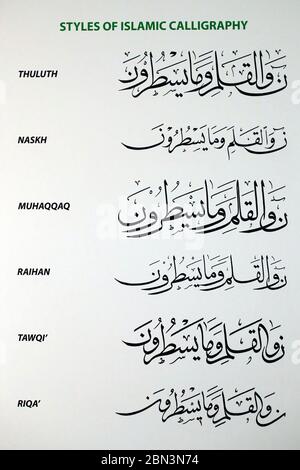 STYLES OF ISLAMIC CALLIGRAPHY
THULUTH
ن وَالْقَلَمِ وَمَا يَسْطُرُونَ
NASKH
ن وَالْقَلَمِ وَمَا يَسْطُرُونَ
MUHAQQAQ
ن وَالْقَلَمِ وَمَا يَسْطُرُونَ
RAIHAN
ن وَالْقَلَمِ وَمَا يَسْطُرُونَ
TAWQI’
ن وَالْقَلَمِ وَمَا يَسْطُرُونَ
RIQA’
ن وَالْقَلَمِ وَمَا يَسْطُرُونَ
alamy
Image ID: 2BN3N74
www.alamy.com